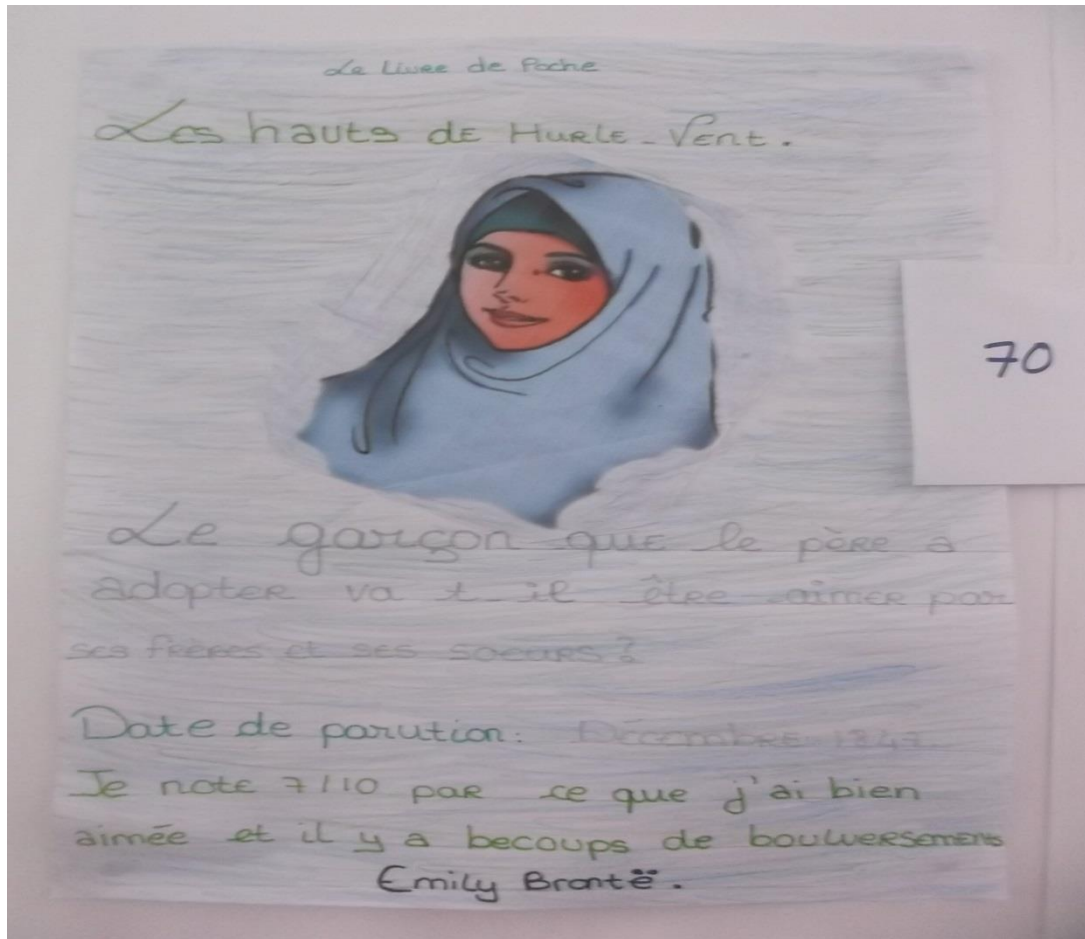 Le Livre de Poche
Les hauts de Hurle-Vent.
70
Le garçon que le père a
adopter va t-il être aimer par
ses frères et ses soeurs?
Date de parution: Décembre 1847.
Je note 7/10 par ce que j'ai bien
aimée et il y a becoups de bouluersements
Emily Brontë.